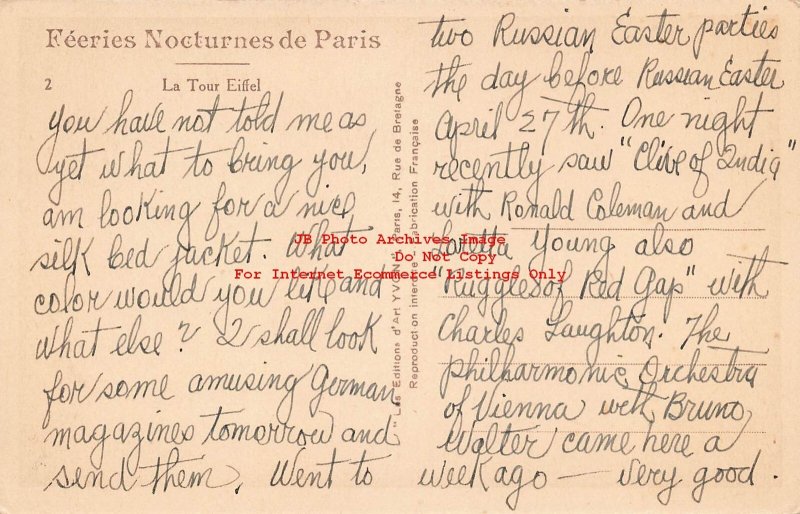 Féeries Nocturnes de Paris
2
La Tour Eiffel
you have not told me as
yet what to bring you,
am looking for a nice
silk bed jacket. What
color would you like and
what else? I shall look
for some amusing German
magazines tomorrow and
send them. Went to
"Les Editions d'Art YVON", Paris, 14, Rue de Bretagne
Reproduction interdite Fabrication Française
two Russian Easter parties
the day before Russian Easter
April 27th. One night
recently saw "Clive of India"
with Ronald Coleman and
Loretta Young also
"Ruggles of Red Gap" with
Charles Laughton. The
Philharmonic Orchestra
of Vienna with Bruno
Walter came here a
week ago — very good.
JB Photo Archives Image
Do Not Copy
For Internet Ecommerce Listings Only